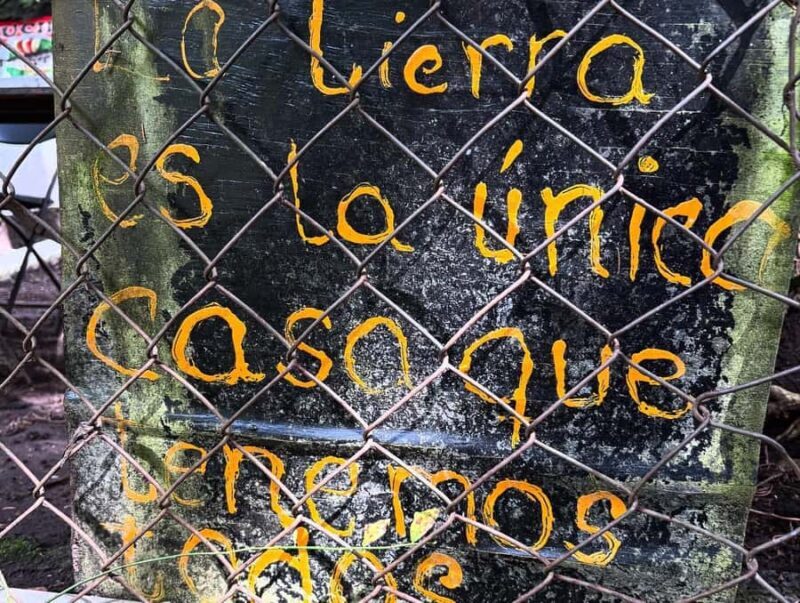 La tierra
es la única
casa que
tenemos
todos